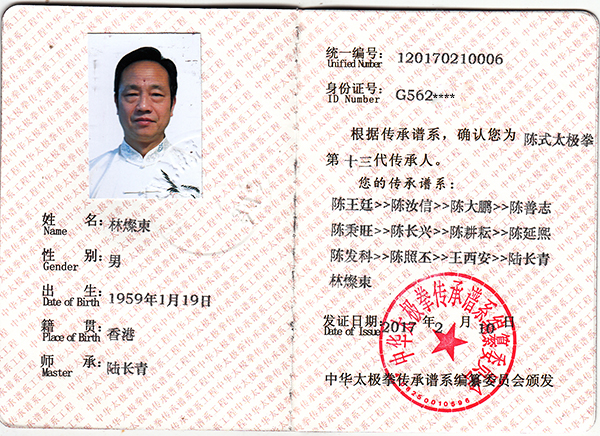 姓 名: 林燦東
Name
性 别: 男
Gender
出 生: 1959年1月19日
Date of Birth
籍 贯: 香港
Place of Birth
师 承: 陆长青
Master
统一编号: 120170210006
Unified Number
身份证号: G562****
ID Number
根据传承谱系，确认您为 陈式太极拳
第 十三代传承人。
您的传承谱系：
陈王廷>>陈汝信>>陈大鹏>>陈善志
陈秉旺>>陈长兴>>陈耕耘>>陈延熙
陈发科>>陈照丕>>王西安>>陆长青
林燦東
发证日期: 2017 年 2 月 10 日
Date of Issue
中华太极拳传承谱系编纂委员会颁发
中华太极拳传承谱系编纂委员会
8250010596